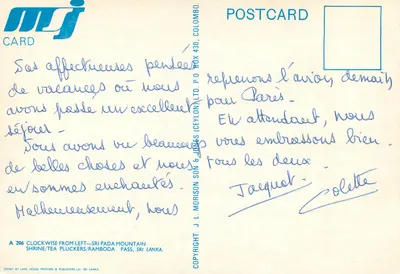 msj
CARD
POSTCARD
Des affectueuses pensées
de vacances où nous
avons passé un excellent
séjour.
Nous avons vu beaucoup
de belles choses et nous
en sommes enchantés.
Malheureusement, nous
reprenons l'avion demain
pour Paris.
En attendant, nous
vous embrassons bien
tous les deux.
Jacquot. Colette
A 206 CLOCKWISE FROM LEFT—SRI PADA MOUNTAIN
SHRINE/TEA PLUCKERS/RAMBODA PASS, SRI LANKA.
COPYRIGHT J. L. MORISON SON & JONES (CEYLON) LTD. P.O. BOX 430, COLOMBO.